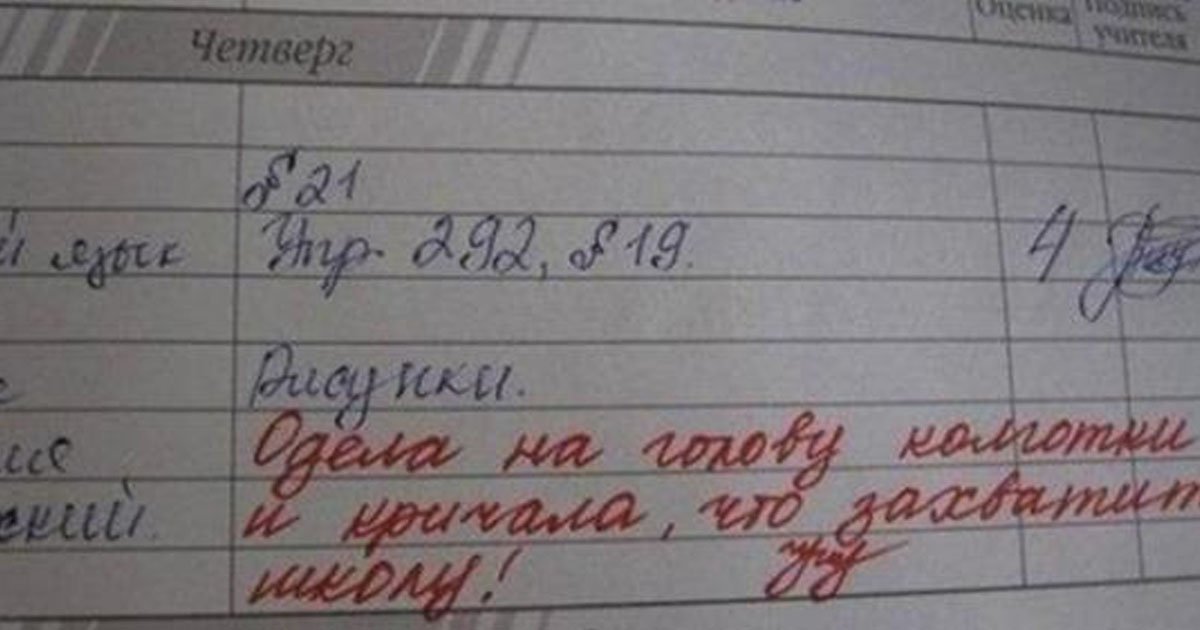 Оценка Подпись
учителя
Четверг
§ 21
й язык Упр. 292, § 19. 4
Рисунки.
Одела на голову колготки
ский. и кричала, что захватит
школу!